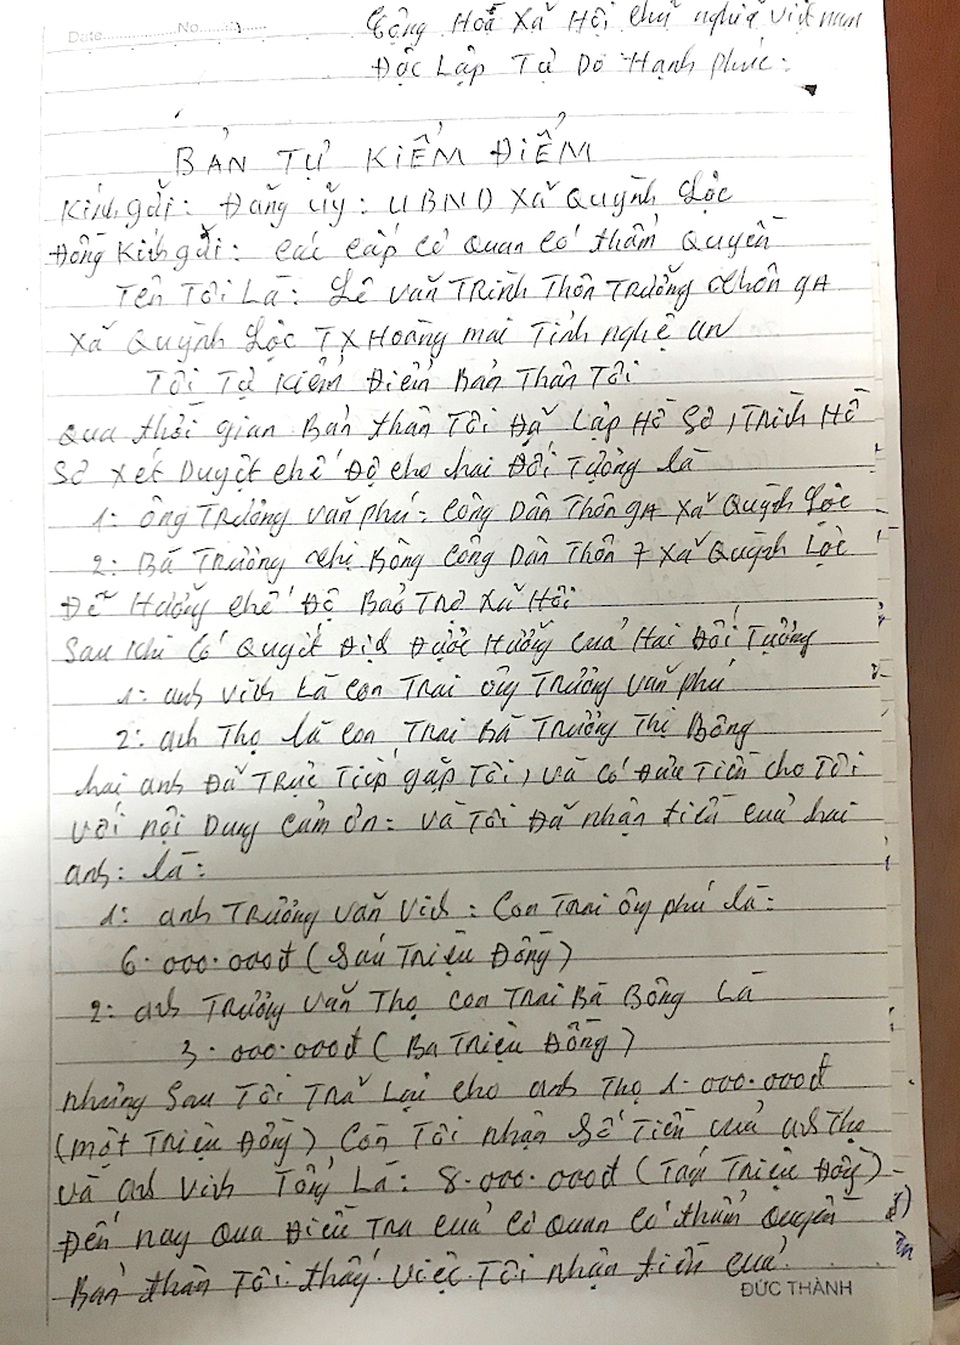 Date................No...........
Cộng Hoà Xã Hội chủ nghĩa Việt nam
Độc Lập Tự Do Hạnh phúc:
BẢN TỰ KIỂM ĐIỂM
Kính gửi: Đảng ủy: UBND Xã Quỳnh Lộc
Đồng Kính gửi: các cấp cơ quan có thẩm Quyền
Tên Tôi Là: Lê Văn TRình Thôn TRưởng thôn 9A
Xã Quỳnh Lộc TX Hoàng mai Tỉnh nghệ an
Tôi Tự kiểm Điểm Bản Thân Tôi
Qua thời gian Bản thân Tôi Đã Lập Hồ Sơ, TRình Hồ
Sơ xét Duyệt chế Độ cho hai Đối Tượng là
1: ông TRương Văn phú: công Dân Thôn 9A Xã Quỳnh Lộc
2: Bà TRương thị Bông công Dân Thôn 7 Xã Quỳnh Lộc
Để Hưởng chế Độ Bảo TRợ Xã Hội
Sau khi có Quyết Định Được Hưởng của Hai Đối Tượng
1: anh Vinh Là con TRai ông TRương Văn phú
2: anh Thọ là con TRai Bà TRương Thị Bông
hai anh Đã TRực Tiếp gặp Tôi, và có Đưa Tiền cho Tôi
với nội Dung cảm ơn: và Tôi Đã nhận tiền của hai
anh: là:
1: anh TRương Văn Vinh: con TRai ông phú là:
6.000.000đ (Sáu TRiệu Đồng)
2: anh TRương Văn Thọ con TRai Bà Bông Là
3.000.000đ (Ba TRiệu Đồng)
nhưng Sau Tôi TRả Lại cho anh Thọ 1.000.000đ
(một TRiệu Đồng) Còn Tôi nhận Số Tiền của anh Thọ
và anh Vinh Tổng Là: 8.000.000đ (Tám TRiệu Đồng)
Đến nay Qua Điều TRa của cơ Quan có thẩm Quyền
Bản thân Tôi thấy việc Tôi nhận tiền của
ĐỨC THÀNH